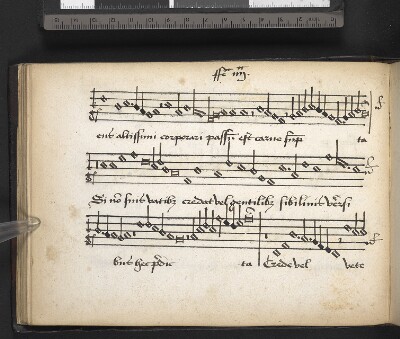 ent altissimi corporari passū est carne sūp ta
Si nō suis vatibȝ credat vel gentilibȝ sibilinis versi
bus hec p̄dic ta Crede vel vete